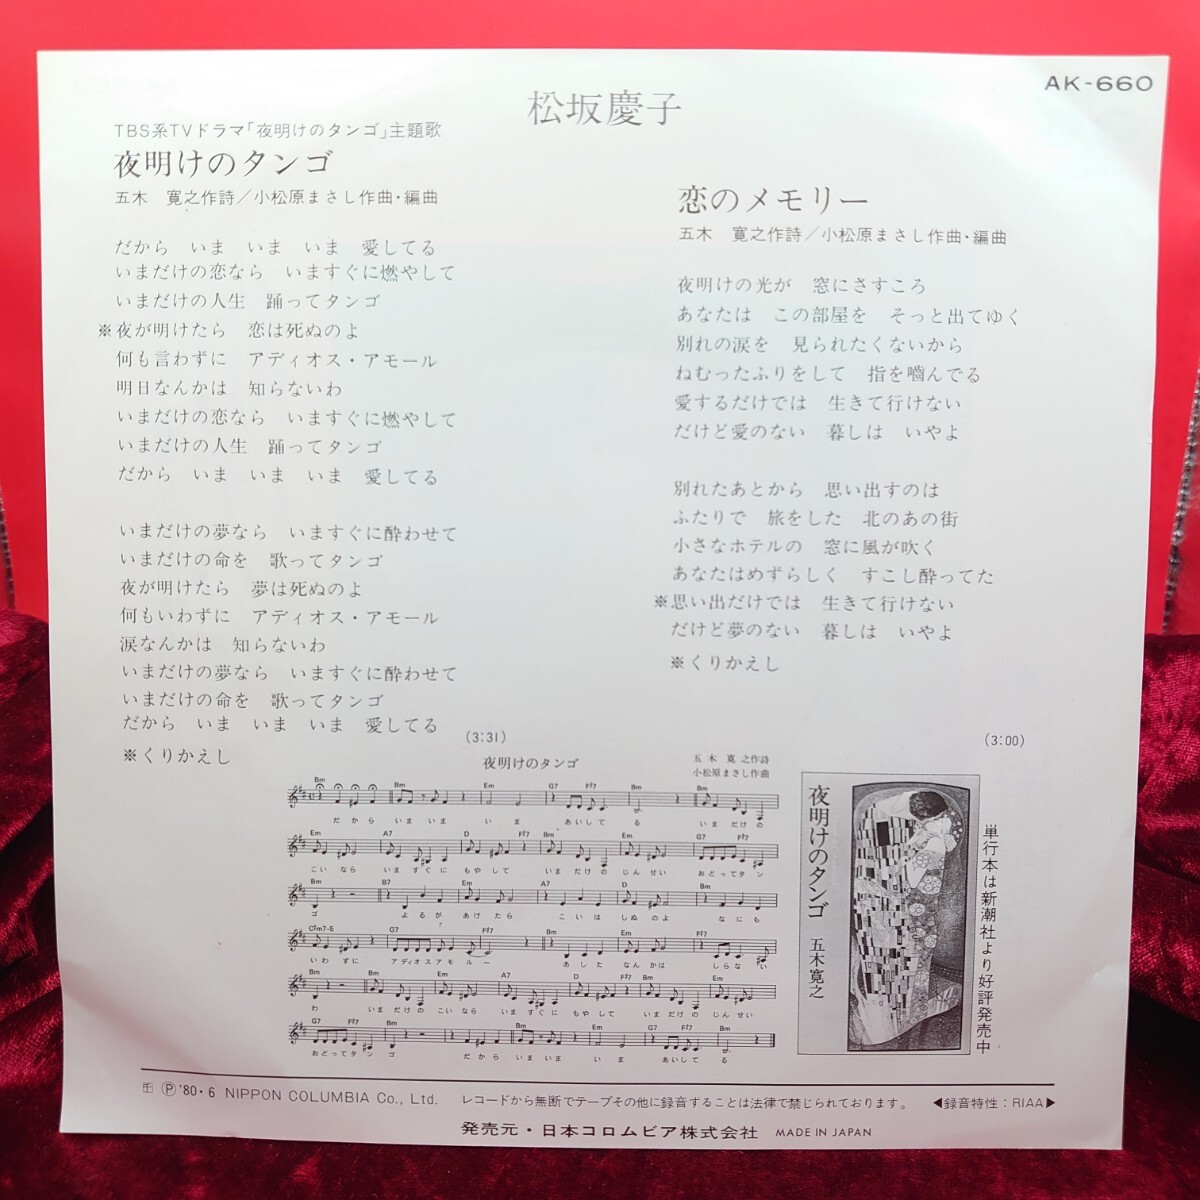 AK-660
松坂慶子
TBS系TVドラマ「夜明けのタンゴ」主題歌
夜明けのタンゴ
五木 寛之作詩／小松原まさし作曲・編曲
だから いま いま いま 愛してる
いまだけの恋なら いますぐに燃やして
いまだけの人生 踊ってタンゴ
※夜が明けたら 恋は死ぬのよ
何も言わずに アディオス・アモール
明日なんかは 知らないわ
いまだけの恋なら いますぐに燃やして
いまだけの人生 踊ってタンゴ
だから いま いま いま 愛してる
いまだけの夢なら いますぐに酔わせて
いまだけの命を 歌ってタンゴ
夜が明けたら 夢は死ぬのよ
何もいわずに アディオス・アモール
涙なんかは 知らないわ
いまだけの夢なら いますぐに酔わせて
いまだけの命を 歌ってタンゴ
だから いま いま いま 愛してる
※くりかえし
(3:31)
恋のメモリー
五木 寛之作詩／小松原まさし作曲・編曲
夜明けの光が 窓にさすころ
あなたは この部屋を そっと出てゆく
別れの涙を 見られたくないから
ねむったふりをして 指を嚙んでる
愛するだけでは 生きて行けない
だけど愛のない 暮しは いやよ
別れたあとから 思い出すのは
ふたりで 旅をした 北のあの街
小さなホテルの 窓に風が吹く
あなたはめずらしく すこし酔ってた
※思い出だけでは 生きて行けない
だけど夢のない 暮しは いやよ
※くりかえし
(3:00)
夜明けのタンゴ
五木 寛之作詩
小松原まさし作曲
Bm Bm Em G7 F#7 Bm Bm
だから いま いま いま あいして る いま だけの
Em A7 D F#7 Bm Em G7 F#7
こい なら いま すぐに もやし て いま だけの じん せい おどって タン
Bm B7 Em A7 D Bm
ゴ よるが あけたら こいは しぬのよ なにも
C#m7-5 G7 F#7 Bm Em F#7
いわ ずに アディオス アモ ルー あした なん かは しらな い
Bm Bm Em A7 D F#7 Bm Em
わ いま だけの こい なら いま すぐに もやし て いま だけの じん せい
G7 F#7 Bm Bm Em F#7 Bm
おどって タン ゴ だから いま いま いま あいして る
夜明けのタンゴ 五木寛之
単行本は新潮社より好評発売中
Ⓟ'80・6 NIPPON COLUMBIA Co., Ltd. レコードから無断でテープその他に録音することは法律で禁じられております。 ◀録音特性：RIAA▶
発売元・日本コロムビア株式会社 MADE IN JAPAN